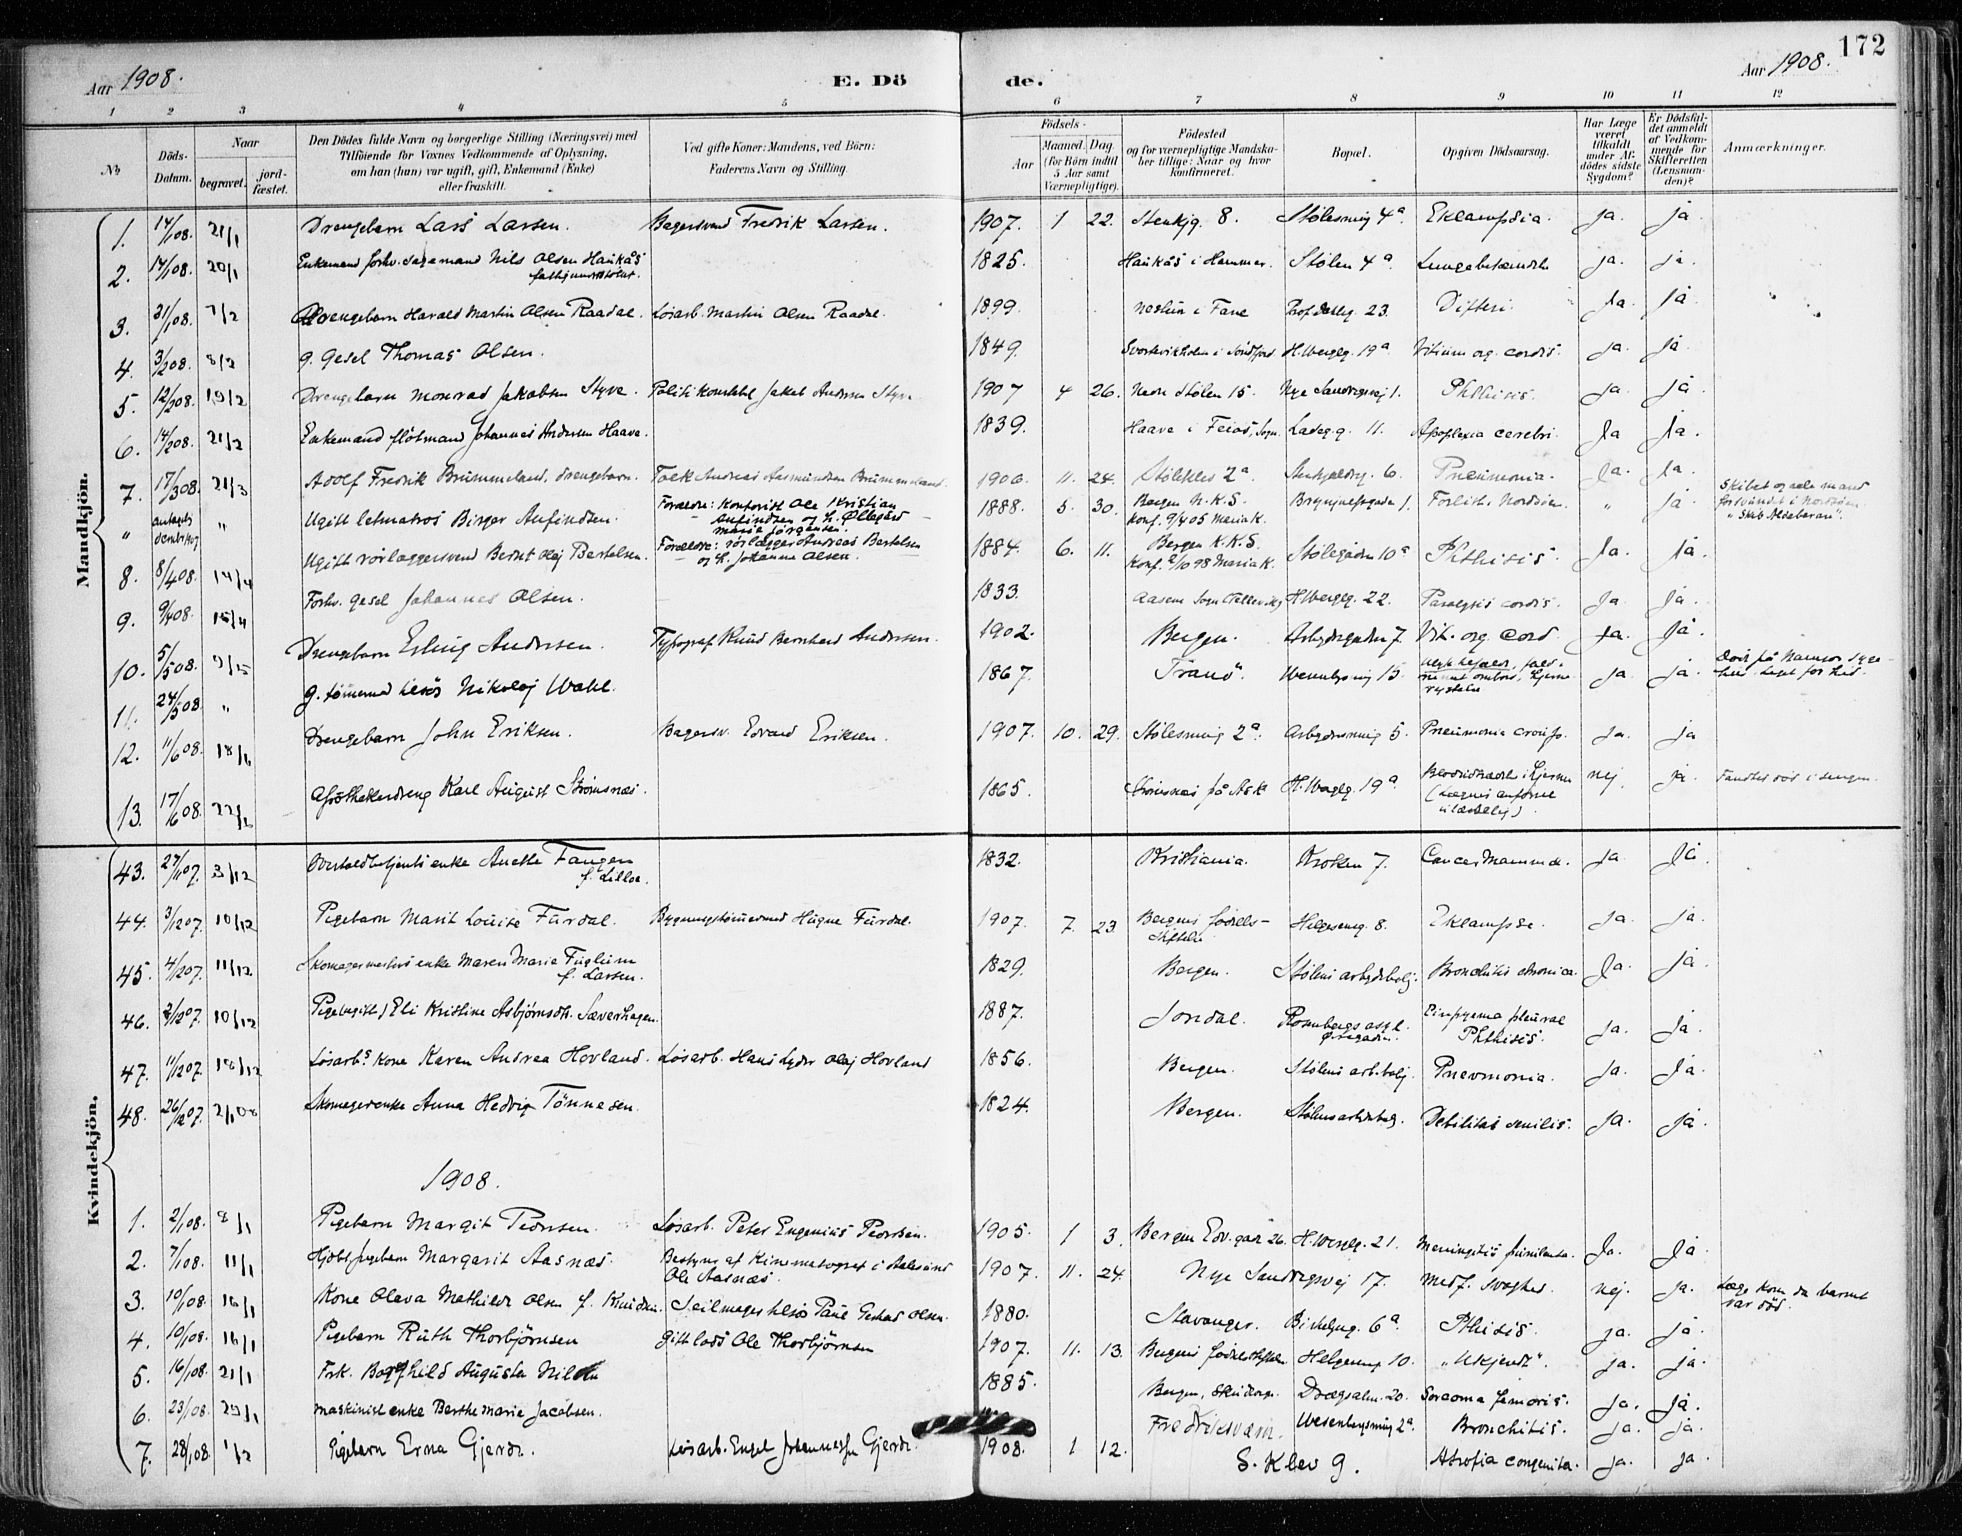 172
Aar 1908. E. Dö
de. Aar 1908.
1 2 3 4 5 6 7 8 9 10 11 12
No
Döds-Datum.
Naar
begravet.
jord-fæstet.
Den Dödes fulde Navn og borgerlige Stilling (Næringsvei) med
Tilföiende for Voxnes Vedkommende af Oplysning,
om han (hun) var ugift, gift, Enkemand (Enke)
eller fraskilt.
Ved gifte Koner: Mandens, ved Börn:
Faderens Navn og Stilling.
Födsels-
Aar
Maaned. Dag.
(for Börn indtil
5 Aar samt
Værnepligtige).
Födested
og for værnepligtige Mandska-
ber tillige: Naar og hvor
konfirmeret.
Bopæl.
Opgiven Dödsaarsag.
Har Læge
været
tilkaldt
under Af-
dödes sidste
Sygdom?
Er Dödsfal-
det anmeldt
af Vedkom-
mende for
Skifteretten
(Lensman-
den)?
Anmærkninger.
Mandkjön.
1. 14/1 08. 21/1 Drengebarn Lars Larsen. Bagersvend Fredrik Larsen. 1907. 1 22. Stenkjg. 8. Stølesmug 4a. Eklampsia. ja. ja
2. 14/1 08. 20/1 Enkemand forhv. Nils Olsen Haukås 1825. Haukås i Hammer. Stølen 4a. ja. ja.
3. 31/1 08. 7/2 Drengebarn Harald Martin Olsen Raadal. Løsarb. Martin Olsen Raadal. 1899 Nestun i Fane 23. Difteri. Ja. Ja
4. 3/2 08. 8/2 g. Gesel Thomas Olsen. 1849. H. Wergelg. 19a Vitium org. cordis. ja. ja.
5. 12/2 08. 19/2 Drengebarn Monrad Jakobsen Styve. Politikonstabel Jakob Andersen Styve 1907 4 26. Nedre Stølen 15. Nye Sandvigsvej 1. Phthisis. ja. ja
6. 14/2 08. 21/2 Enkemand Johannes Andersen Haave. 1839. Haave i Feios, Sogn. Ladeg.g. 11. Apoplexia cerebri. Ja Ja.
7. 17/3 08. 21/3 Adolf Fredrik Brummeland, drengebarn. Andreas Aasmundsen Brummeland. 1906 11. 24. Stølebles 2a Stenkjeldrg. 6. Pneumonia. Ja. Ja.
" antagelig " Ugift letmatros Birger Anfindsen. Forældre: Kontorist Ole Kristian
Anfindsen og h. Øllegård
Marie Jørgensen. 1888. 5. 30. Bergen N.K.S.
Konf. 9/4 05 Mariak. 1. Forlist i Nordsjøen. " ja. Skibet og hele mand
forsvundet i Nordsjøen
"Skib Aldebaran".
8. 8/4 08. 14/4 Ugift rørlæggersvend Bernt Olaj Bertelsen. Forældre: rørlægger Andreas Bertelsen
og h. Johanne Olsen. 1884. 6. 11. Bergen K.K.S.
Konf. 2/10 98 Mariak. Stølegaden 10a Phthisis. Ja. Ja.
9. 9/4 08. 15/4 Forhv. gesel Johannes Olsen. 1833. H. Wergelg. 22. Paralysis cordis. Ja. Ja.
10. 5/5 08. 9/5 Drengebarn Erling Andersen. Typograf Knud Bernhard Andersen. 1902. Bergen. 7. Vit. org. cord. Ja. Ja
11. 24/5 08. " g. tømmermand Nikolaj Wahl. 1867. Tranø. 15. ja. ja.
12. 11/6 08. 18/6 Drengebarn John Eriksen. Bagersv. Edvard Eriksen. 1907. 10. 29. Stølesmug 2a. 5. Pneumonia croup. ja. ja
13. 17/6 08. 22/6 Apothekerdreng Karl August Strømsnæs. 1865. Strømsnæs på Ask H. Wergelg. 19a nej. ja. Fandtes død i sengen.
Kvindekjön.
43. 27/11 07. 3/12 enke Anethe Fangen
f. Lilloe. 1832. Kristiania. Kroken 7. Cancer mammae. ja. Ja.
44. 3/12 07. 10/12 Pigebarn Marit Louise Furdal. Bygningstømmermand Hugne Furdal. 1907. 7. 23. Bergens fødsels-
stiftelse. Helgesensg. 8. Eklampsi. ja. ja.
45. 4/12 07. 11/12 Skomagermesters enke Maren Marie Fuglum
f. Larsen. 1829. Bergen. Stølens arbejderbolj. Bronchitis chronica. Ja. ja.
46. 3/12 07. 10/12 Pige (ugift) Eli Kristine Asbjørnsdtr. Sæverhagen. 1887. Jondal. Rosenbergs asyl. Empyema pleurae
Phthisis. ja. Ja.
47. 11/12 07. 18/12 Løsarbs. kone Karen Andrea Hovland. Løsarb. Hans Lyder Olaj Hovland 1856. Bergen. Stølens arb.bolj. Pneumonia. ja. Ja.
48. 26/12 07. 2/1 08 Skomagerenke Anna Hedvig Tønnesen. 1824. Bergen. Stølens arbejderbolj. Debilitas senilis. ja. ja
1908.
1. 2/1 08. 8/1 Pigebarn Margit Pedersen. Løsarb. Peter Engenius Pedersen. 1905. 1 3. Bergen 26. H. Wergelg. 21. Meningitis purulenta. Ja. Ja
2. 7/1 08. 11/1 Margarit Aasnæs. Bestyrer af Kinematograf i Aalesund
Ole Aasnæs. 1907. 11. 24. Nye Sandvigsvej 17. Medf. svaghed. nej. ja. Læge kom da barnet
var død.
3. 10/1 08. 16/1 Kone Olava Mathilde Olsen f. Knudsen. Seilmager Paul Gerhard Olsen. 1880. Stavanger. 6a. Phtisis. ja. ja.
4. 10/1 08. 16/1 Pigebarn Ruth Thorbjørnsen Gift lods Ole Thorbjørnsen 1907. 11. 13. Bergens fødselsstiftelse. Helgesensg. 10. "Ukjendt". ja. ja.
5. 16/1 08. 21/1 Frk. Borghild Augusta Nilsen 1885. Bergen, Dregsalm. 20. Sarcoma femoris. ja. ja.
6. 23/1 08. 29/1 Maskinistenke Berthe Marie Jacobsen. Fredriksværn. Wesenbergsmug 2a Bronchitis. Ja. Ja.
7. 28/1 08. 1/2 Pigebarn Erna Gjerde. Løsarb. Engel Johannessen Gjerde. 1908. 1 12. S. Klev 9. Atrofia congenita. ja. ja